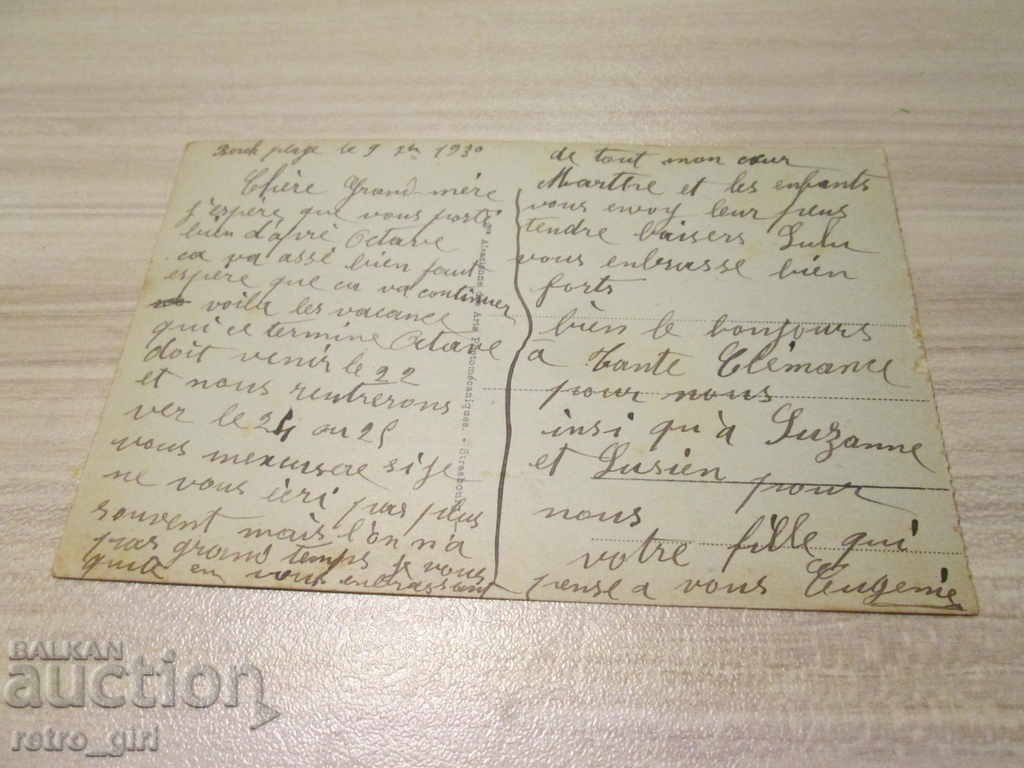 plage le 9 1930
Chère Grand mère
j'espère que vous porte
bien d'apré Octave
ca va assé bien faut
espére que ca va continuer
voila les vacance
qui ce termine Octave
doit venir le 22
et nous rentrerons
ver le 24 ou 25
vous mexcusere si je
ne vous écri pas plus
souvent mais l'on n'a
pas grand temps je vous
quite en vous embrassant
de tout mon cœur
Marthe et les enfants
vous envoy leur plus
tendre baisers Lulu
vous enbrasse bien
forts
bien le bonjours
a Tante Clémance
pour nous
insi qu'à Suzanne
et Lusien pour
nous
votre fille qui
pense a vous Eugenie
Alsacienne des Arts Photomécaniques. - Strasbourg
BALKAN
auction
retro_girl